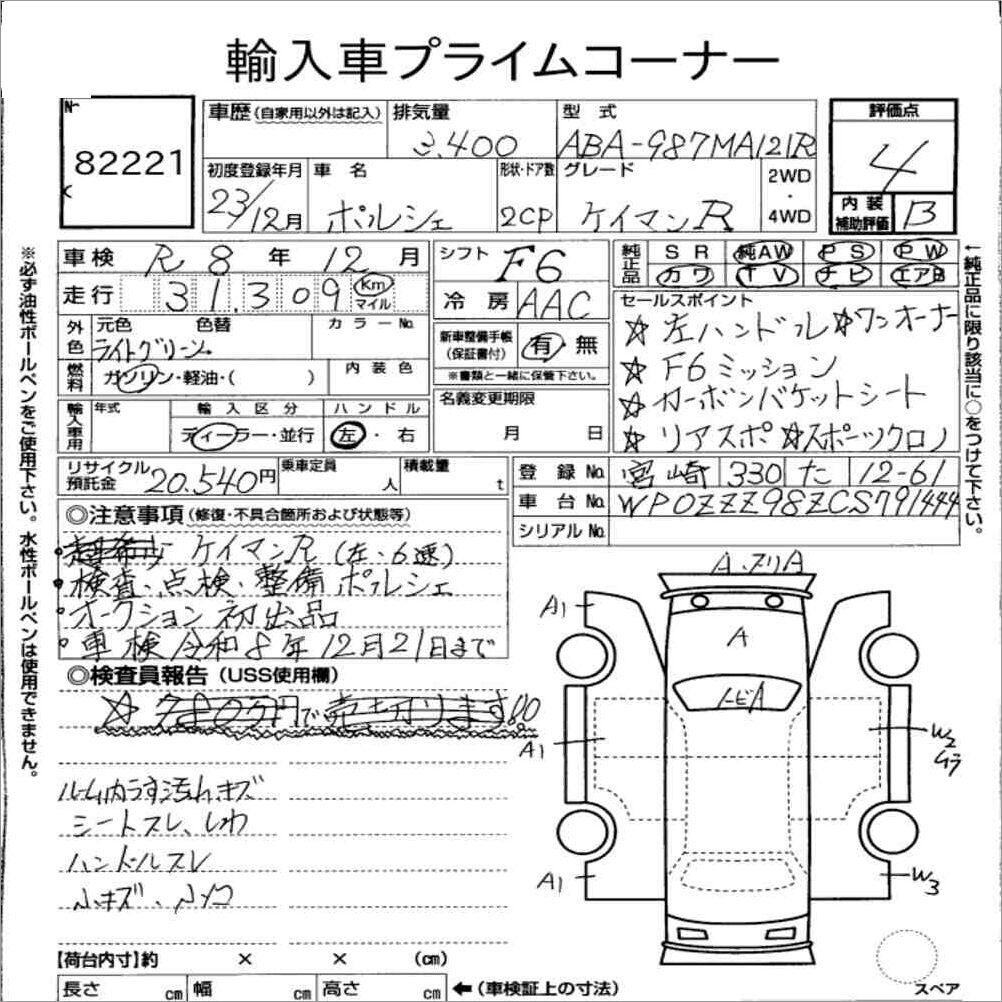 輸入車プライムコーナー
No
82221
車歴 (自家用以外は記入)
排気量
3,400
型式
ABA-987MA121R
評価点
4
初度登録年月
23/12月
車名
ポルシェ
形状・ドア数
2CP
グレード
ケイマンR
2WD
・
4WD
内装
補助評価
B
車検 R 8 年 12 月
シフト F6
純正品 SR 純AW PS PW
カワ TV ナビ エアB
走行 31,309 Km マイル
冷房 AAC
セールスポイント
☆左ハンドル ☆ワンオーナー
☆F6ミッション
☆カーボンバケットシート
☆リアスポ ☆スポーツクロノ
外色 元色 色替
ライトグリーン
カラーNo.
新車整備手帳
(保証書付) 有・無
※書類と一緒に保管下さい。
燃料 ガソリン・軽油・( )
内装色
名義変更期限
月 日
輸入車用 年式
輸入区分
ディーラー・並行
ハンドル
左・右
リサイクル
預託金 20,540円
乗車定員
人
積載量
t
登録No. 宮崎 330 た 12-61
車台No. WP0ZZZ98ZCS791444
シリアルNo.
◎注意事項 (修復・不具合箇所および状態等)
ケイマンR (左・6速)
・検査、点検、整備 ポルシェ
・オークション初出品
・車検 令和8年12月21日まで
◎検査員報告 (USS使用欄)
ルーム内うす汚れキズ
シートスレ、しわ
ハンドルスレ
小キズ、小ソコ
【荷台内寸】約 × × (cm)
長さ cm 幅 cm 高さ cm
←(車検証上の寸法)
A1
A
A1
W2
A1
W3
スペア
※必ず油性ボールペンをご使用下さい。水性ボールペンは使用できません。
←純正品に限り該当に○をつけて下さい。